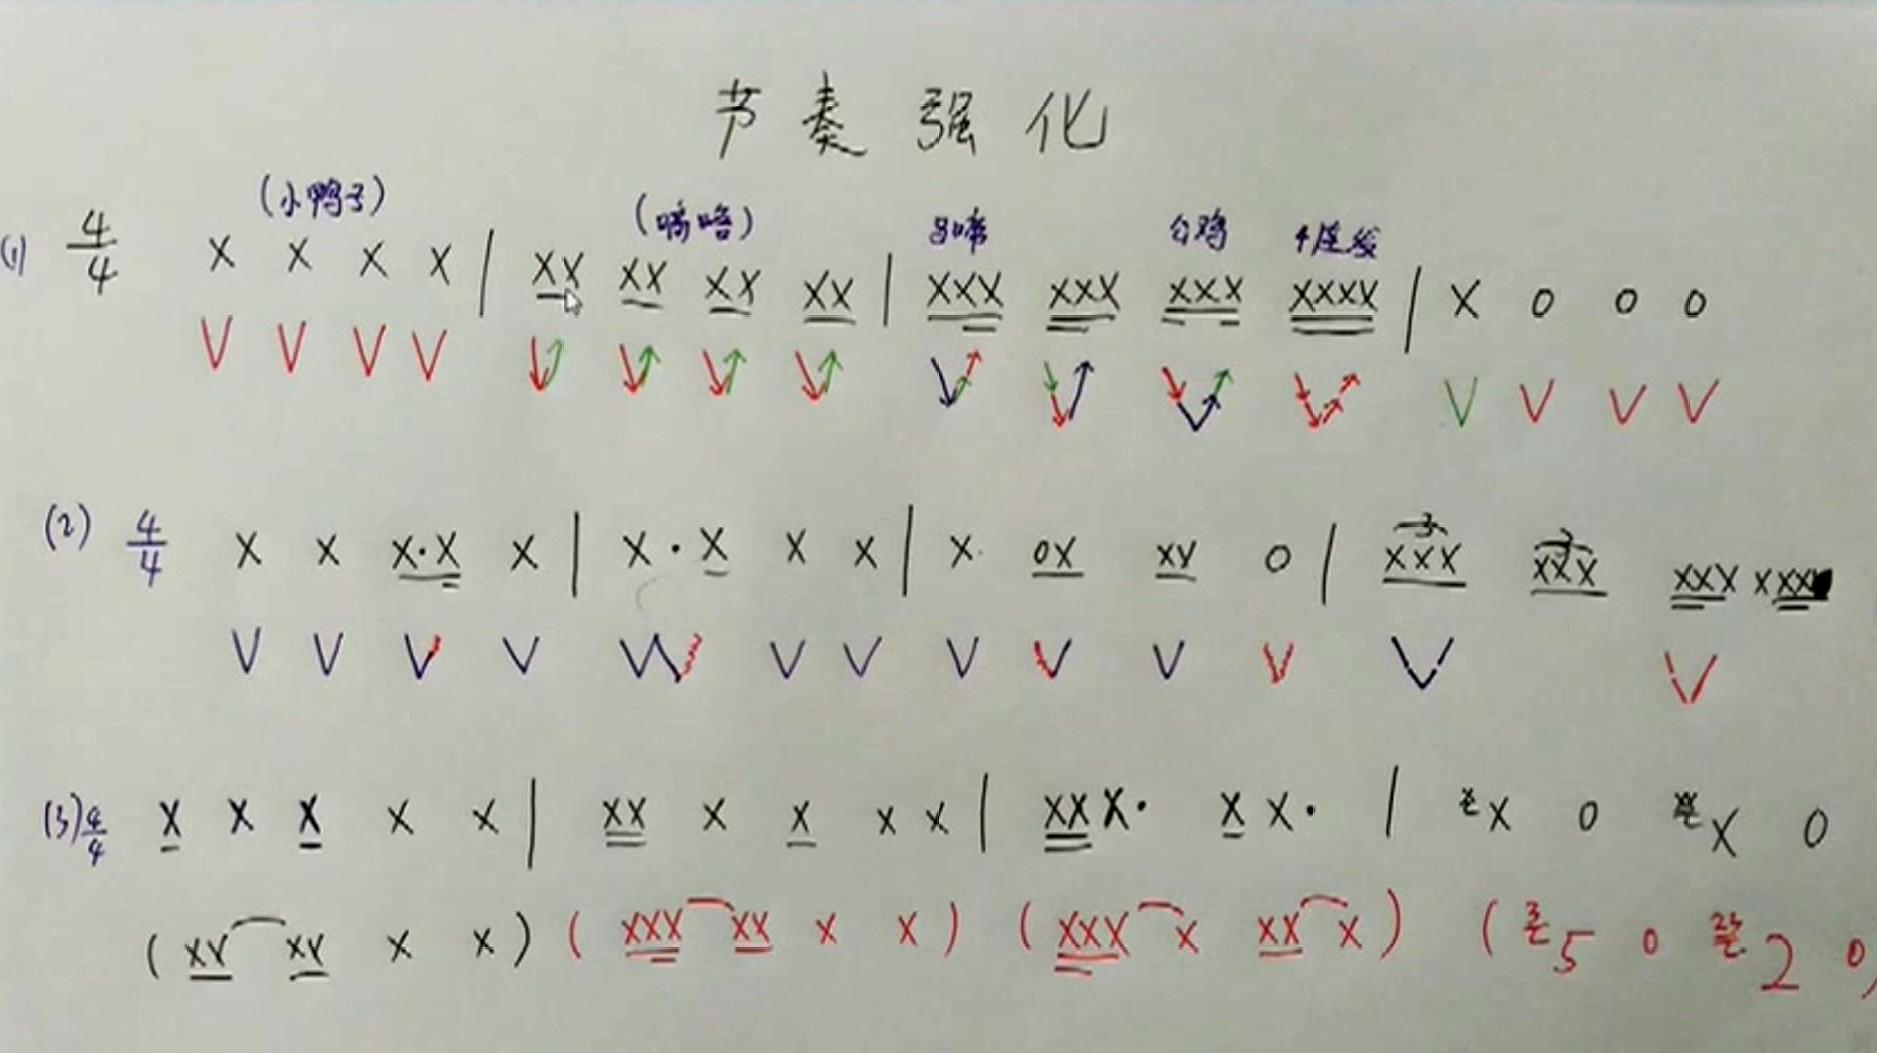 节奏强化
(小鸭子) (嘀咯) 公鸡 4连线
(1) 4/4 X X X X | XX XX XX XX | XXX XXX XXX XXXX | X 0 0 0
(2) 4/4 X X X·X X | X·X X X | X 0X XX 0 | 3 XXX 3 XXX XXX XXX
(3) 4/4 X X X X X | XX X X X X | XX X· X X· | X 0 X 0
(XX XX X X) (XXX XX X X) (XXX X XX X) (5 0 2 0)